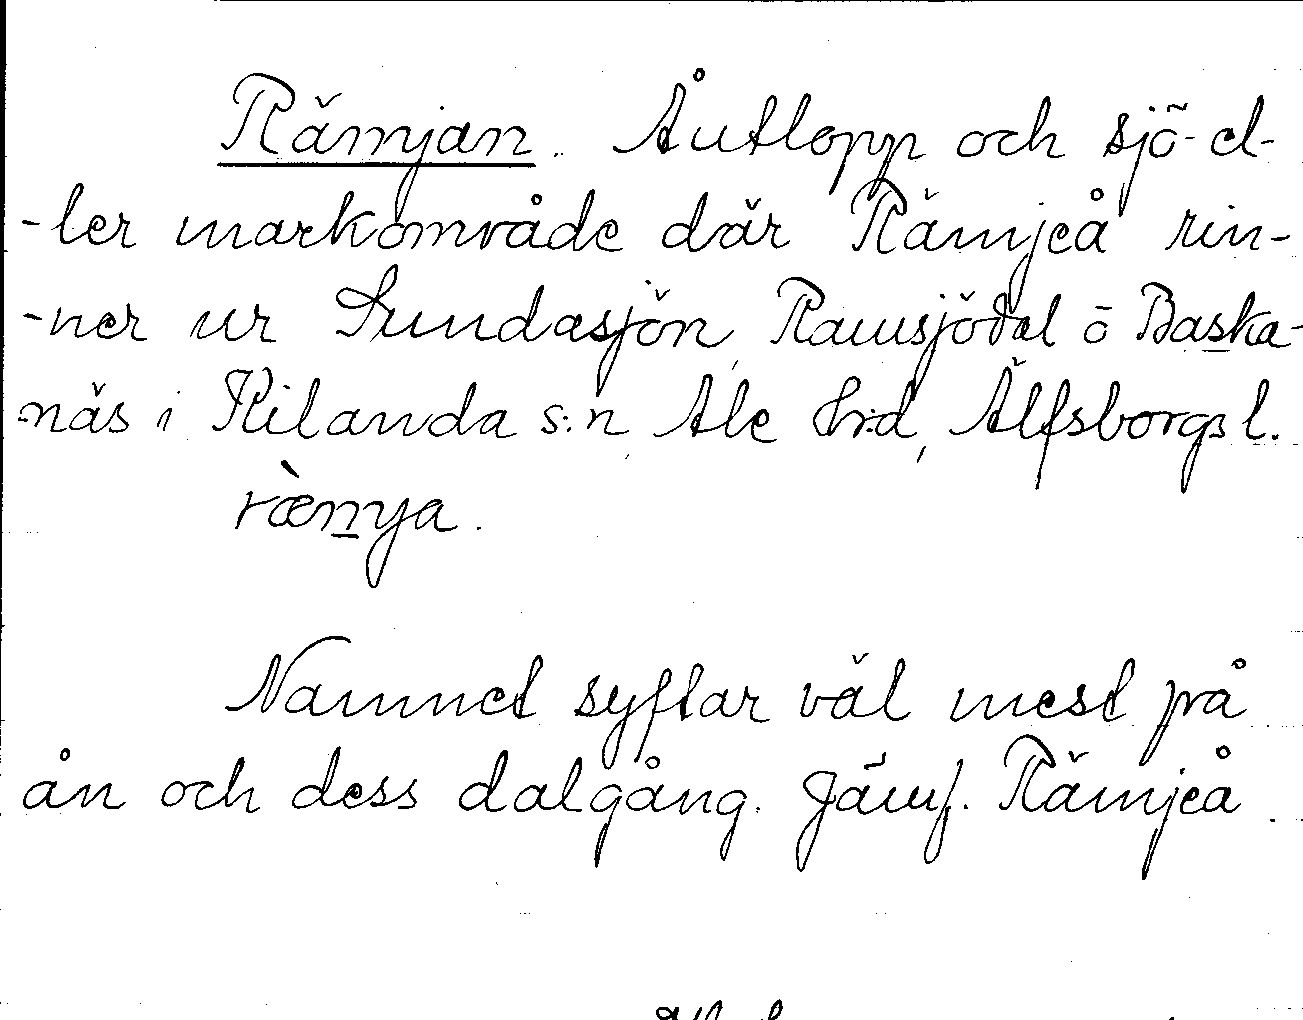 Rämjan. Åutlopp och sjö- el-
-ler markområde där Rämjeå rin-
-ner ur Sundasjön, Ramsjödal ö Baska-
näs i Kilanda s:n, Ale hrd, Älfsborgs l.
ræ̀mya.
Namnet syftar väl mest på
ån och dess dalgång. Jämf. Rämjeå.